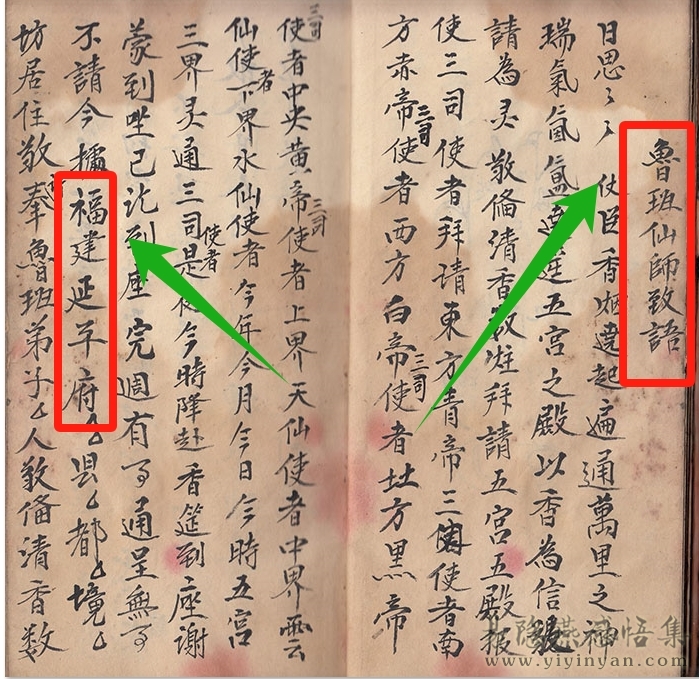 魯班仙師致語
日思〻〻使臣香烟遶起遍通萬里之神
瑞氣氤氳達送五宮之殿以香為信
請為灵敬俻清香数炷拜請五宮五殿報
使三司使者拜請東方青帝三使者南
方赤帝三司使者西方白帝三司使者北方黑帝
三司使者中央黃帝三司使者上界天仙使者中界雲
仙使者下界水仙使者今年今月今日今時五宮
三界灵通三司使者是使今時降赴香筵到座謝
蒙到坐已訖列座完週有了通呈無了
不請今據福建延平府厶县厶都厶境厶
坊居住敬奉魯班弟子厶人敬俻清香数
燕悟集
www.yiyinyan.com